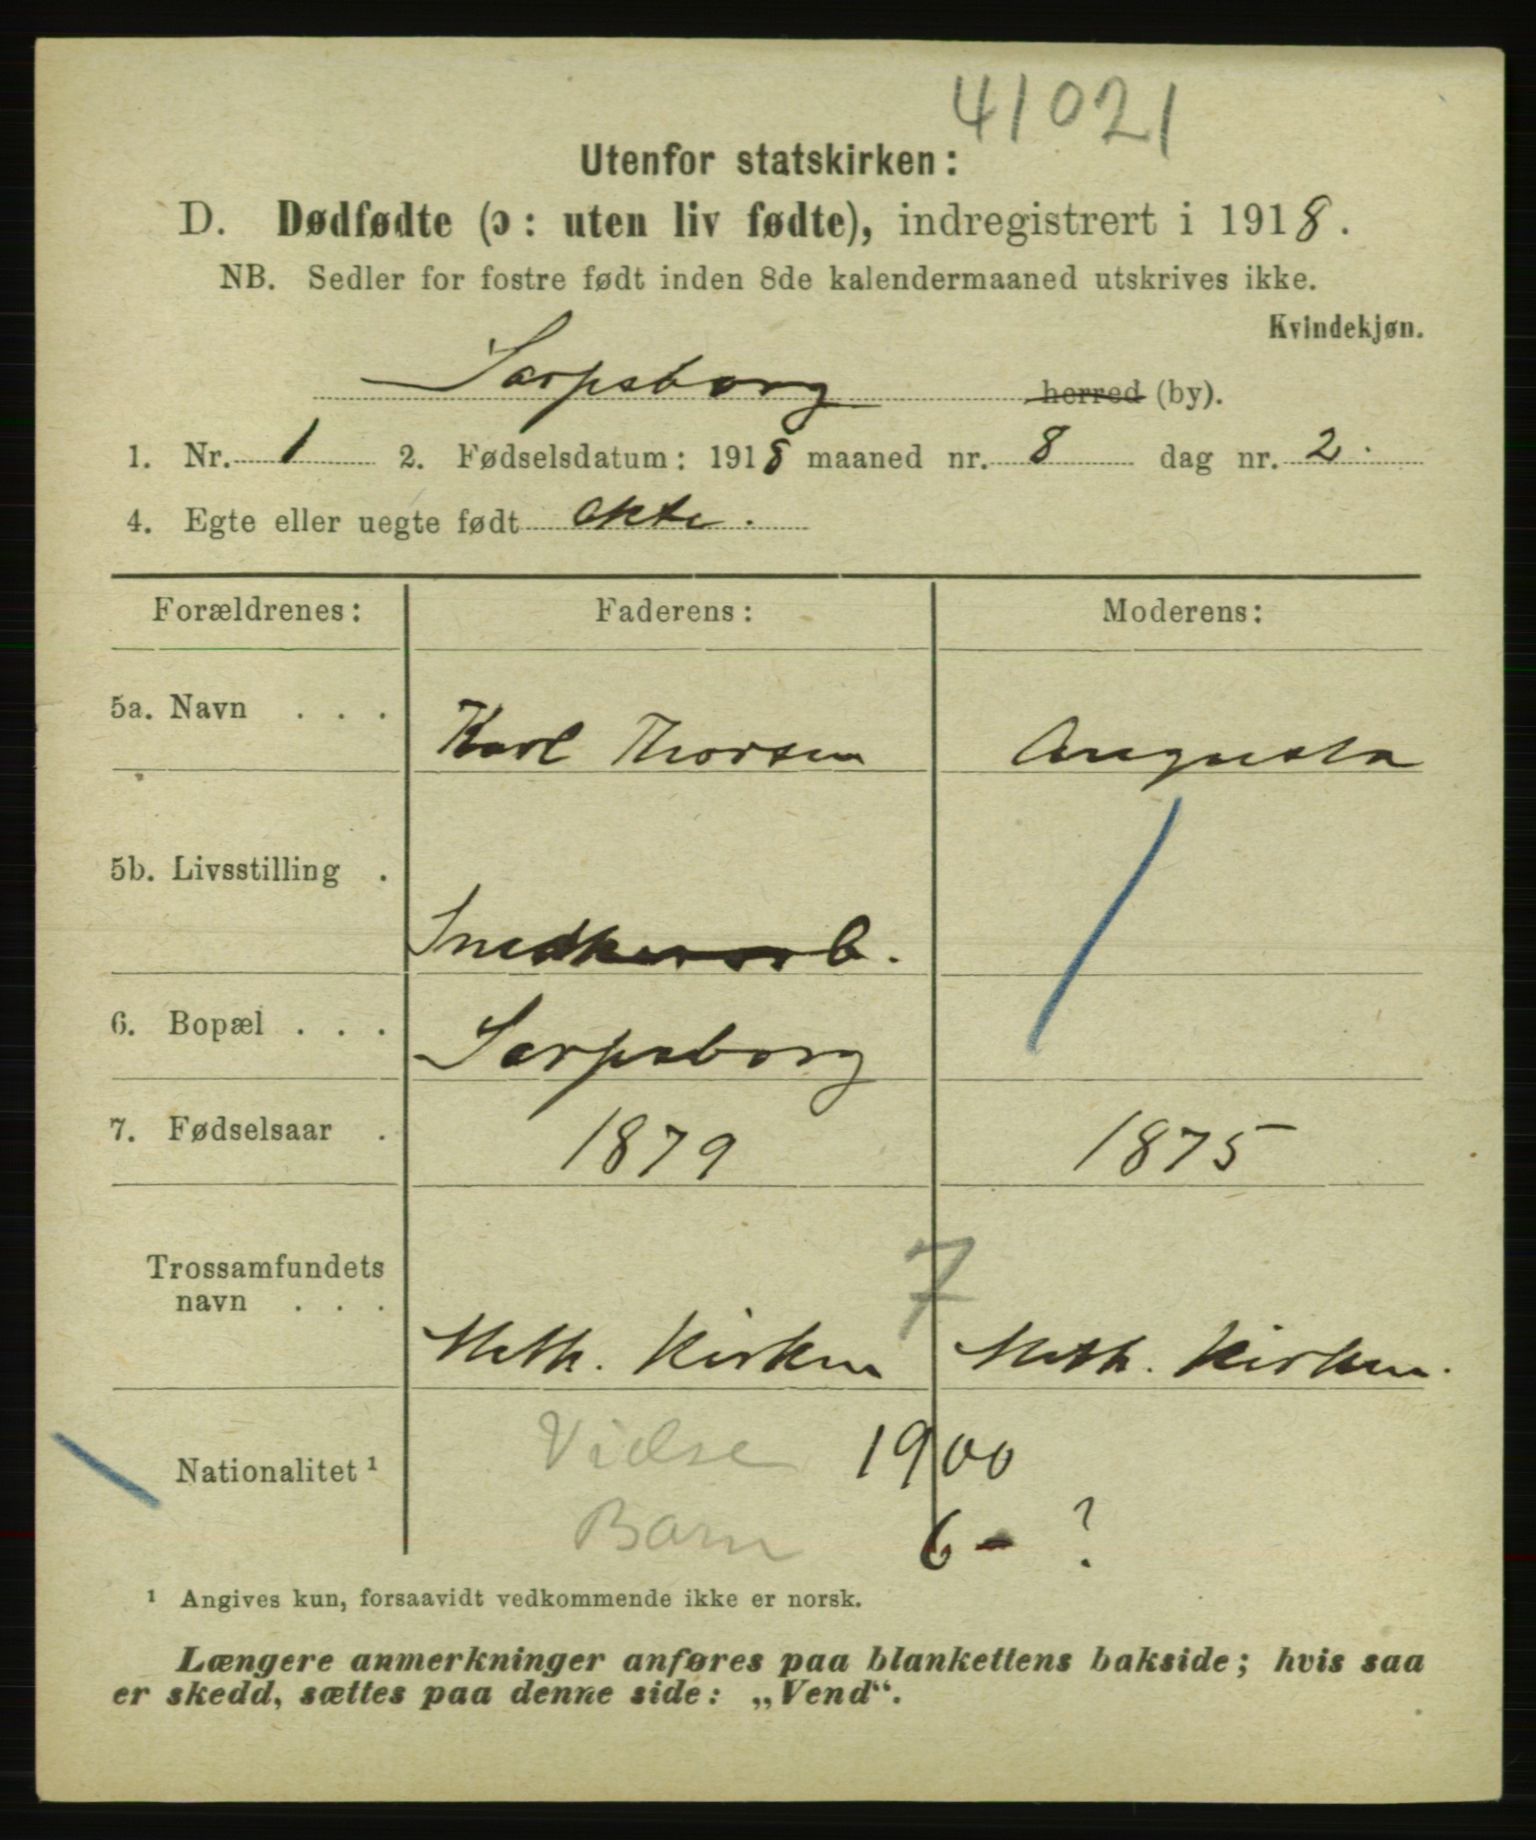 41021
Utenfor statskirken:
D. Dødfødte (ɔ: uten liv fødte), indregistrert i 1918.
NB. Sedler for fostre født inden 8de kalendermaaned utskrives ikke.
Kvindekjøn.
Sarpsborg herred (by).
1. Nr. 1 2. Fødselsdatum: 1918 maaned nr. 8 dag nr. 2.
4. Egte eller uegte født ekte.
Forældrenes: Faderens: Moderens:
5a. Navn . . . Karl Thorsen Augusta
5b. Livsstilling . Snedkerarb.
6. Bopæl . . . Sarpsborg
7. Fødselsaar . 1879 1875
7
Trossamfundets
navn . . . Meth. Kirken Meth. Kirken.
Nationalitet¹ Vielse 1900
Barn 6 - ?
¹ Angives kun, forsaavidt vedkommende ikke er norsk.
Længere anmerkninger anføres paa blankettens bakside; hvis saa
er skedd, sættes paa denne side: „Vend“.